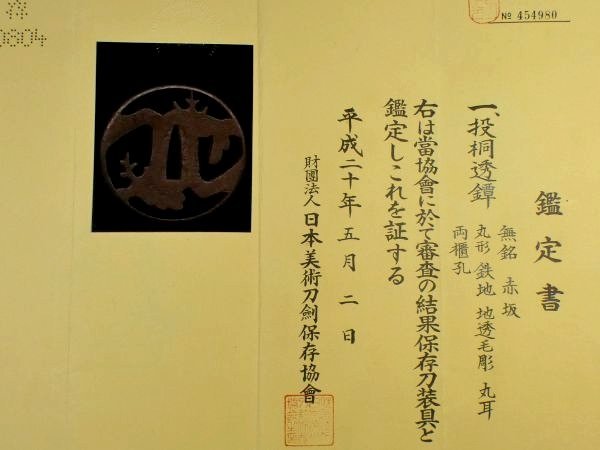 № 454980
鑑定書
一、投桐透鐔
無銘 赤坂
丸形 鉄地 地透毛彫 丸耳
両櫃孔
右は當協會に於て審査の結果保存刀装具と
鑑定しこれを証する
平成二十年五月二日
財團法人 日本美術刀劍保存協會
0804